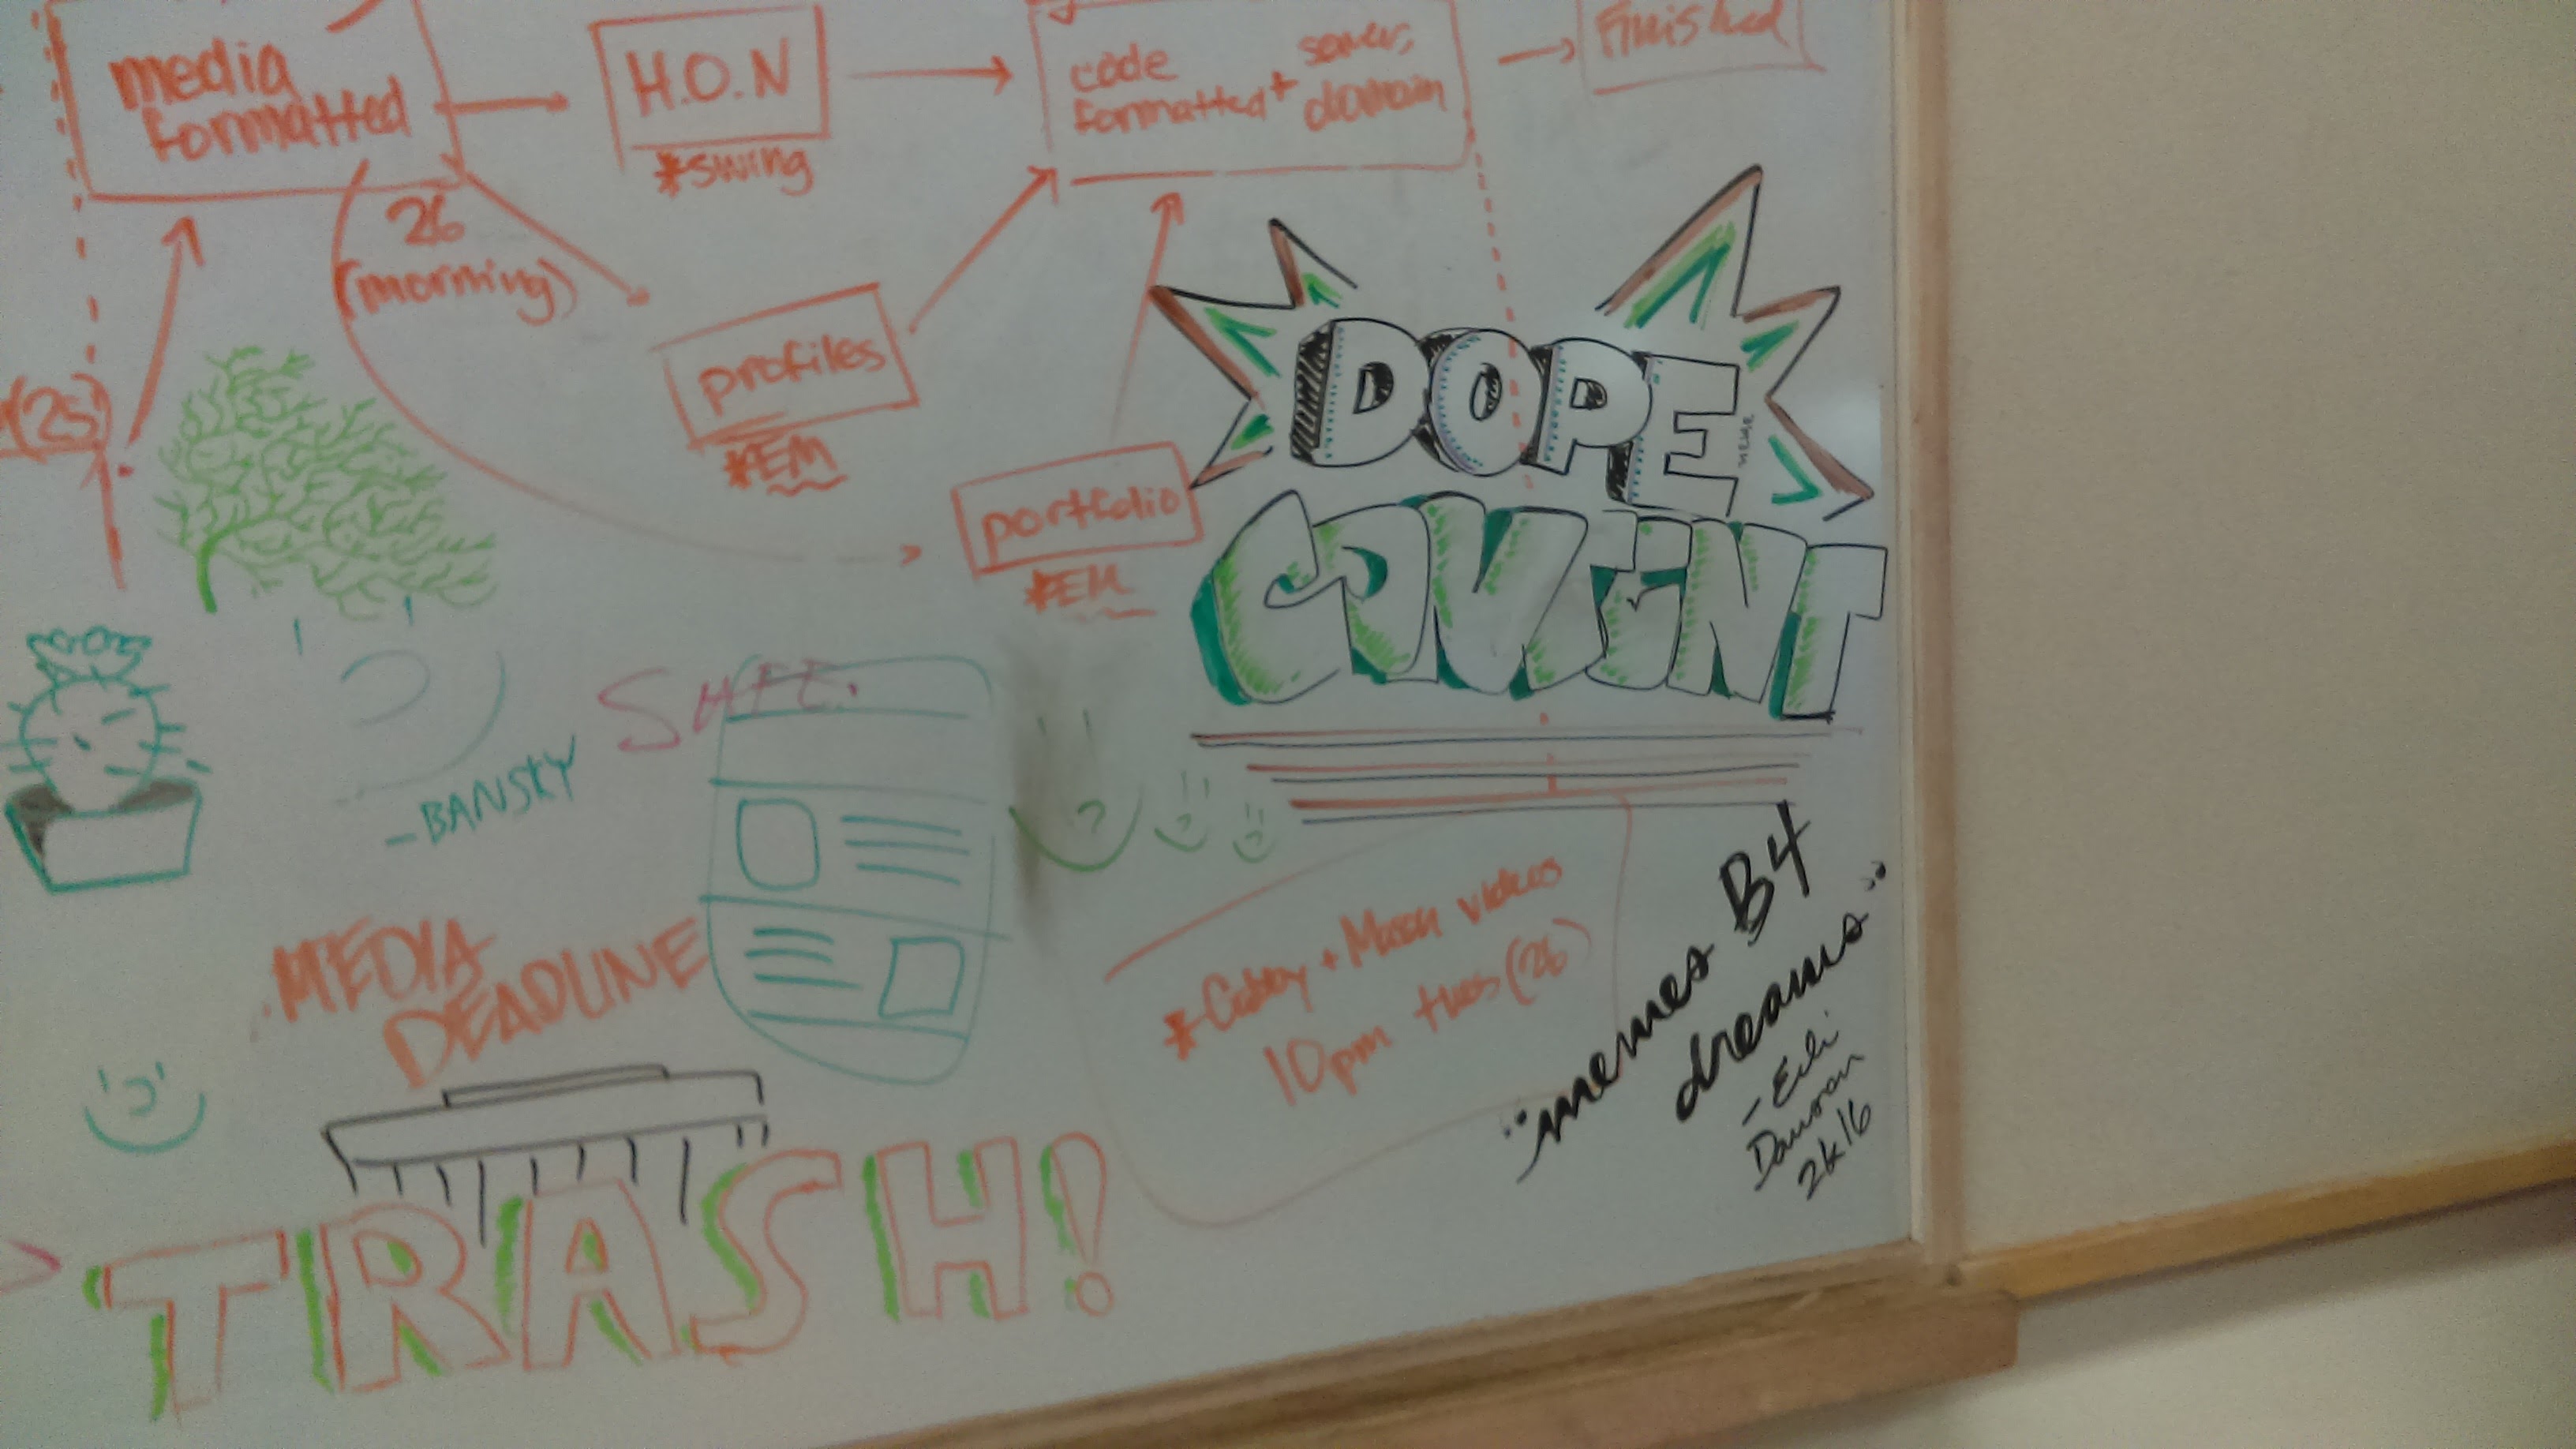 media
formatted
H.O.N
*swing
code
formatted +
server,
domain
Finished
26
(morning)
(25)
profiles
*EM
portfolio
*EM
DOPE
CONTENT
SAFE.
-BANSKY
MEDIA
DEADLINE
videos
10pm tues (26)
"memes B4
dreams"
2k16
TRASH!